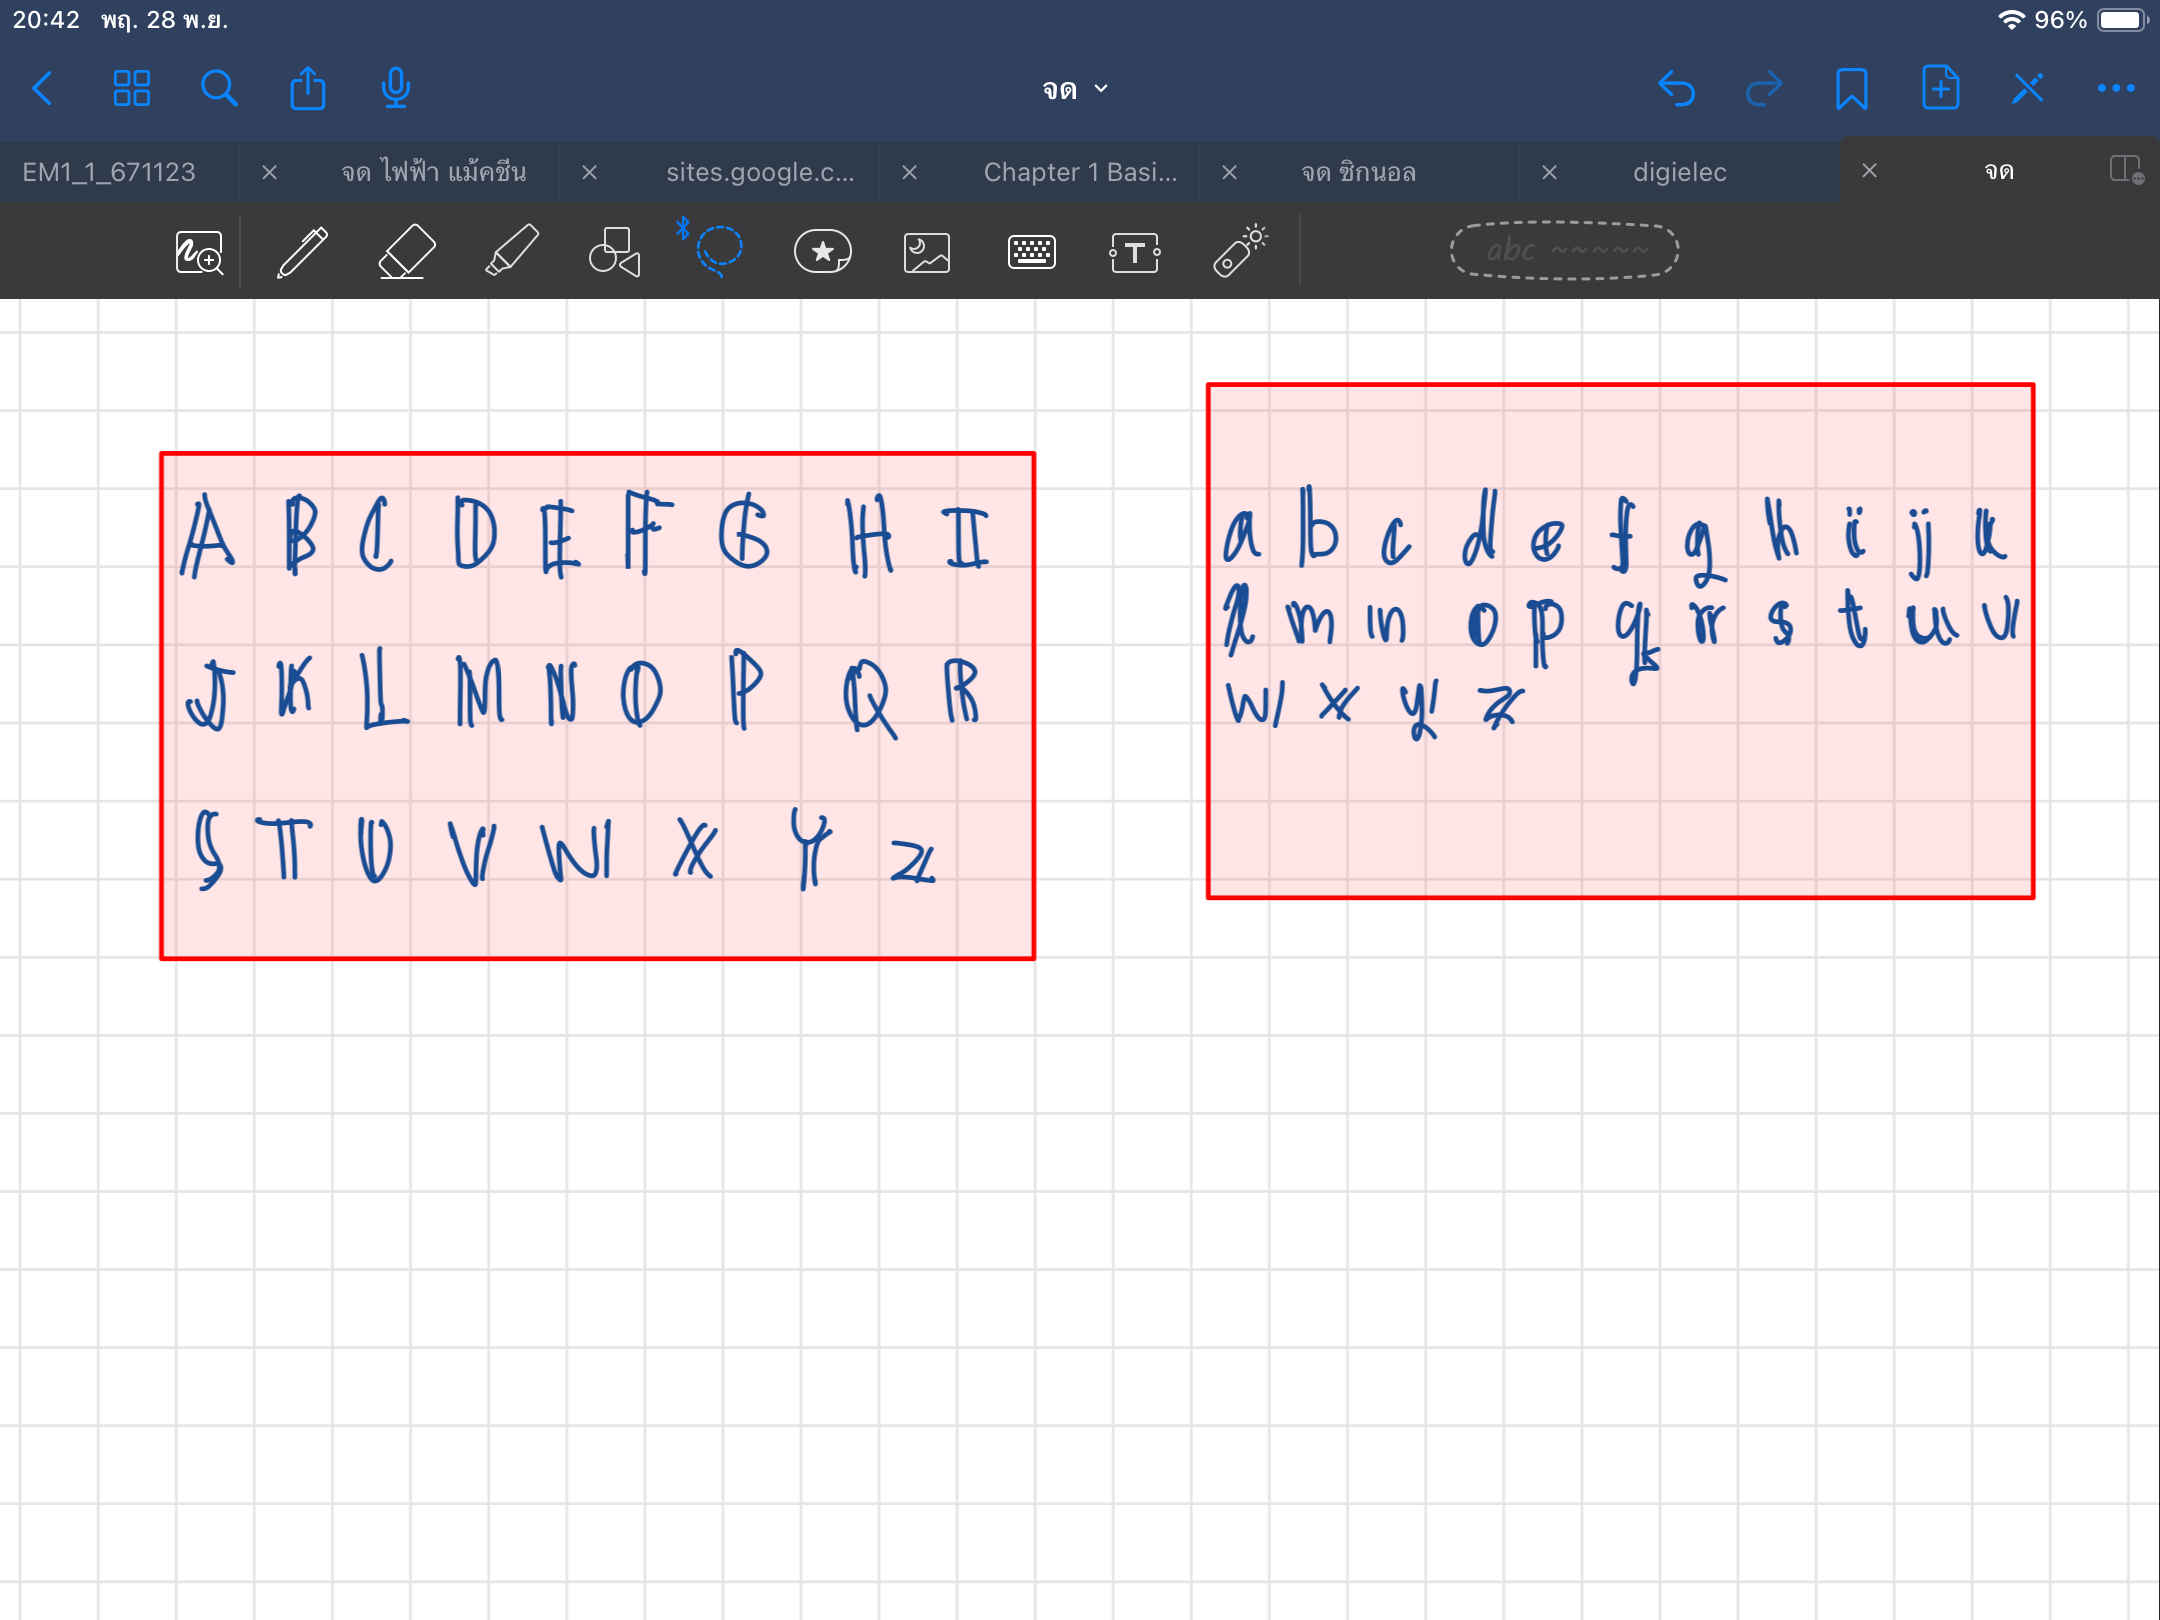 20:42 พฤ. 28 พ.ย. 96%
จด
EM1_1_671123 จด ไฟฟ้า แม้คชีน sites.google.c... Chapter 1 Basi... จด ซิกนอล digielec จด
T abc ~~~~~
A B C D E F G H I
J K L M N O P Q R
S T U V W X Y Z
a b c d e f g h i j k
l m n o p q r s t u v
w x y z